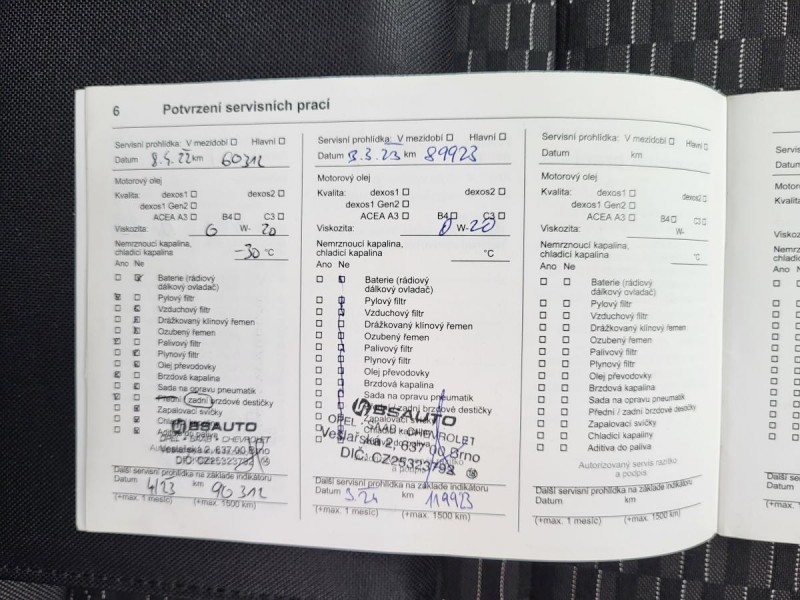 6 Potvrzení servisních prací
Servisní prohlídka: V mezidobí Hlavní
Datum 8.4.22 km 60312
Motorový olej
Kvalita: dexos1 dexos2
dexos1 Gen2
ACEA A3 B4 C3
Viskozita: 0 W- 20
Nemrznoucí kapalina,
chladicí kapalina -30 °C
Ano Ne
Baterie (rádiový
dálkový ovladač)
Pylový filtr
Vzduchový filtr
Drážkovaný klínový řemen
Ozubený řemen
Palivový filtr
Plynový filtr
Olej převodovky
Brzdová kapalina
Sada na opravu pneumatik
Přední / zadní brzdové destičky
Zapalovací svíčky
Aditiva do paliva
BSAUTO
OPEL - SAAB - CHEVROLET
Veslařská 2, 637 00 Brno
DIČ: CZ25323792
Další servisní prohlídka na základě indikátoru
Datum 4/23 km 90312
(+max. 1 měsíc) (+max. 1500 km)
Servisní prohlídka: V mezidobí Hlavní
Datum 3.3.23 km 89923
Motorový olej
Kvalita: dexos1 dexos2
dexos1 Gen2
ACEA A3 B4 C3
Viskozita: 0 W-20
Nemrznoucí kapalina,
chladicí kapalina °C
Ano Ne
Baterie (rádiový
dálkový ovladač)
Pylový filtr
Vzduchový filtr
Drážkovaný klínový řemen
Ozubený řemen
Palivový filtr
Plynový filtr
Olej převodovky
Brzdová kapalina
Sada na opravu pneumatik
zadní brzdové destičky
Zapalovací
BSAUTO
OPEL - SAAB - CHEVROLET
Veslařská 2, 637 00 Brno
DIČ: CZ25323792
a podpis
Další servisní prohlídka na základě indikátoru
Datum 3.24 km 119923
(+max. 1 měsíc) (+max. 1500 km)
Servisní prohlídka: V mezidobí Hlavní
Datum km
Motorový olej
Kvalita: dexos1 dexos2
dexos1 Gen2
ACEA A3 B4 C3
Viskozita: W-
Nemrznoucí kapalina,
chladicí kapalina °C
Ano Ne
Baterie (rádiový
dálkový ovladač)
Pylový filtr
Vzduchový filtr
Drážkovaný klínový řemen
Ozubený řemen
Palivový filtr
Plynový filtr
Olej převodovky
Brzdová kapalina
Sada na opravu pneumatik
Přední / zadní brzdové destičky
Zapalovací svíčky
Chladicí kapaliny
Aditiva do paliva
Autorizovaný servis razítko
a podpis
Další servisní prohlídka na základě indikátoru
Datum km
(+max. 1 měsíc) (+max. 1500 km)
Datum
Ano Ne
Datum